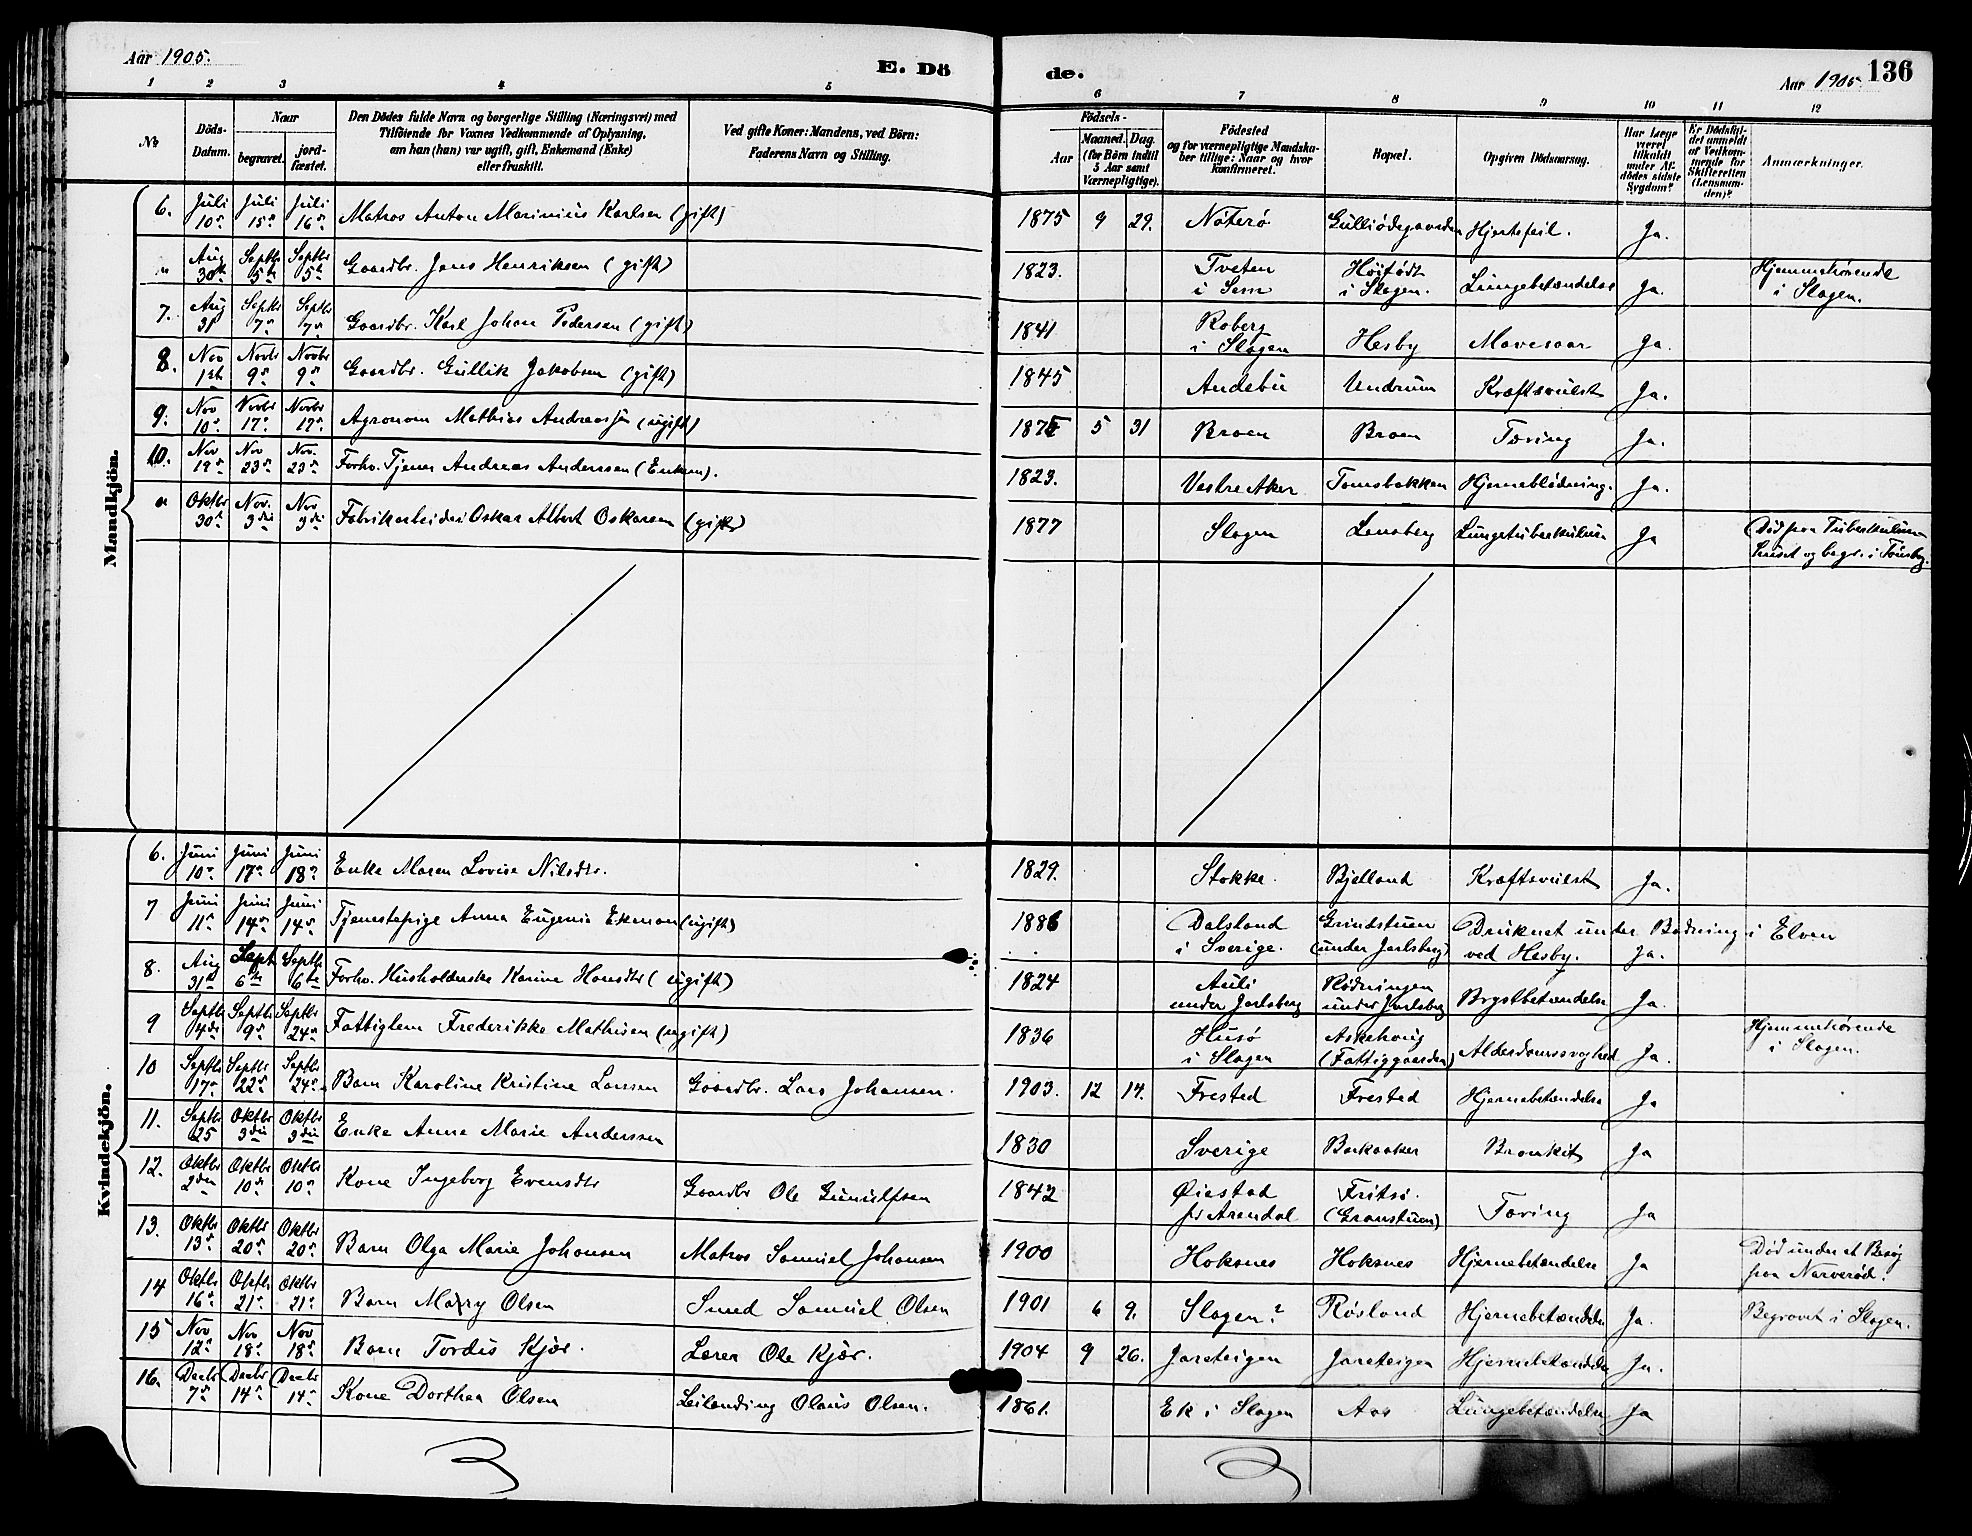 Aar 1905.
E. Dö
de.
Aar 1905.
136
1 2 3 4 5 6 7 8 9 10 11 12
No
Döds-Datum.
Naar
begravet.
jord-fæstet.
Den Dödes fulde Navn og borgerlige Stilling (Næringsvei) med
Tilföiende for Voxnes Vedkommende af Oplysning,
om han (hun) var ugift, gift, Enkemand (Enke)
eller fraskilt.
Ved gifte Koner: Mandens, ved Börn:
Faderens Navn og Stilling.
Födsels-
Aar
Maaned. Dag.
(for Börn indtil
5 Aar samt
Værnepligtige).
Födested
og for værnepligtige Mandska-
ber tillige: Naar og hvor
konfirmeret.
Bopæl.
Opgiven Dödsaarsag.
Har Læge
været
tilkaldt
under Af-
dödes sidste
Sygdom?
Er Dödsfal-
det anmeldt
af Vedkom-
mende for
Skifteretten
(Lensman-
den)?
Anmærkninger.
Mandkjön.
6. Juli 10de Juli 15de Juli 16de Matros Anton Marinius Karlsen (gift) 1875 9 29. Nøterø Hjertefeil. Ja.
" Aug 30te Septbr 5te Septbr 5te Gaardbr. Jens Henriksen (gift) 1823. Tveten i Sem i Slagen. Lungebetændelse Ja. Hjemmehørende i Slagen.
7. Aug 31 Septbr 7de Septbr 7de Gaardbr. Karl Johan Pedersen (gift) 1841 Roberg i Slagen Hesby Mavesaar Ja.
8. Nov 1ste Novbr 9de Novbr 9de Gaardbr. Gullik Jakobsen (gift) 1845 Andebu Undrum Kræftsvulst Ja.
9. Nov 10de Novbr 17de Novbr 17de Agronom Mathias Andreassen (ugift) 5 31 Broen Broen Tæring Ja.
10. Nov 19de Nov 23de Nov. 23de Forhv. Tjener Andreas Anderssen (Enkem). 1823. Vestre Aker Tomsbakken Hjerneblødning. Ja.
" Oktbr 30te Nov. 3die Nov 3die Fabrikarbeider Oskar Albert Oskarsen (gift) 1877 Slagen Lensberg Lungetuberkulose Ja Død paa Tuberkulose-
huset og begr. i Tönsberg.
Kvindekjön.
6. Juni 10de Juni 17de Juni 18de Enke Maren Lovise Nilsdtr. 1829. Stokke. Bjelland Kræftsvulst Ja.
7 Juni 11te Juni 14de Juni 14de Tjenestepige Anna Eugenia Ekman (ugift) 1886 Dalsland i Sverige. Grindstuen (under Jarlsberg) Druknet under Badning i Elven
ved Hesby. Ja.
8. Aug 31te Sept 6te Septbr 6te Forhv. Husholderske Karine Hansdtr (ugift) 1824 Auli under Jarlsberg Rødningen under Jarlsberg Brystbetændelse Ja.
9 Septbr 4de Septbr 9de Septbr 24de Fattiglem Frederikke Mathisen (ugift) 1836 Husø i Slagen Askehoug (Fattiggaarden) Alderdomssvaghed Ja. Hjemmehørende i Slagen.
10 Septbr 17de Septbr 22de Septbr 24de Barn Karoline Kristine Larssen Gaardbr. Lars Johansen. 1903. 12 14. Frested Frested Hjernebetændelse Ja
11. Septbr 25 Oktbr 3die Oktbr 3die Enke Anne Marie Anderssen 1830 Sverige Barkaaker Bronkit Ja
12. Oktbr 2den Oktbr 10de Oktbr 10de Kone Ingeborg Evensdtr Gaardbr Ole Gunulfsen 1842 Øiestad pr Arendal Fritsö. (Granstuen) Tæring Ja
13. Oktbr 13de Oktbr 20de Oktbr 20de Barn Olga Marie Johansen Matros Samuel Johansen 1900 Hoksnes Hoksnes Hjernebetændelse Ja Død under et Besøg
paa Narverød.
14 Oktbr 16de Oktbr 21de Oktbr 21de Barn Mary Olsen Smed Samuel Olsen 1901 6 9. Slagen? Røsland Hjernebetændelse Ja. Begravet i Slagen.
15 Nov 12te Nov 18de Nov 18de Barn Tordis Kjær. Lærer Ole Kjær. 1904 9 26. Jareteigen Jareteigen Hjernebetændelse Ja.
16. Decbr 7de Decbr 14de Decbr 14de Kone Dorthea Olsen Leilending Olaus Olsen. 1861. Ek i Slagen Aas Lungebetændelse Ja